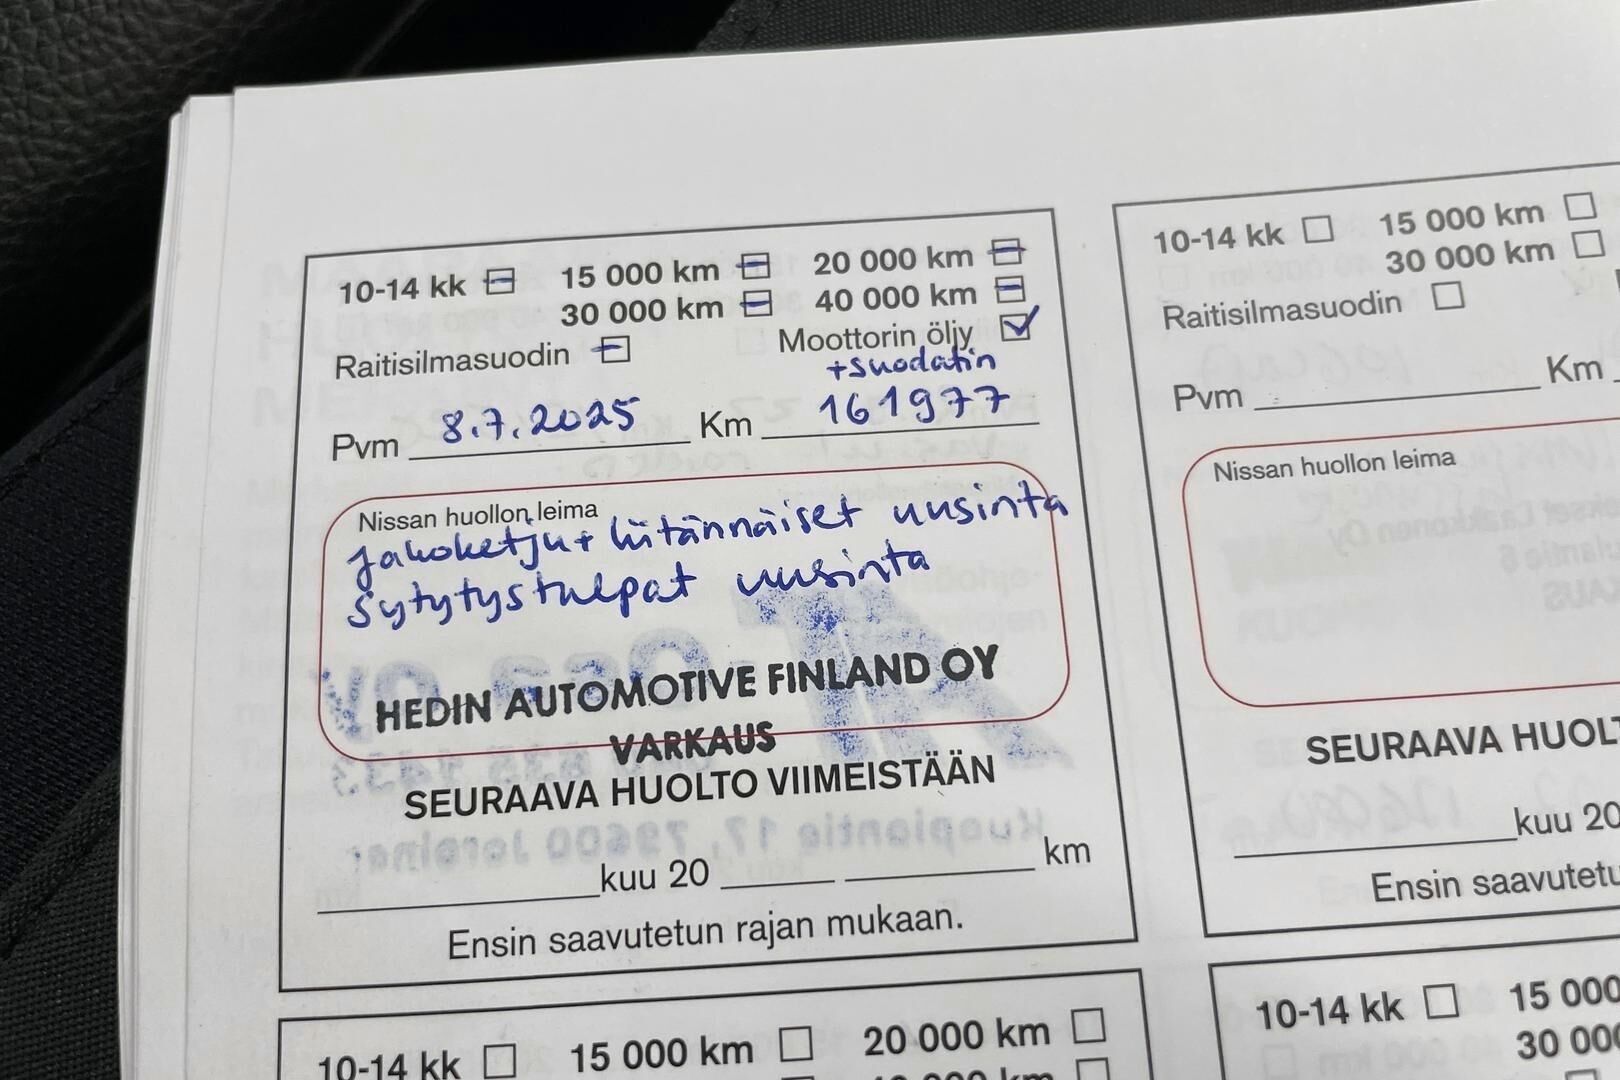 10-14 kk 15 000 km 20 000 km
30 000 km 40 000 km
Raitisilmasuodin Moottorin öljy
+suodatin
Pvm 8.7.2025 Km 161977
Nissan huollon leima
Jakoketju + liitännäiset uusinta
Sytytystulpat uusinta
HEDIN AUTOMOTIVE FINLAND OY
VARKAUS
SEURAAVA HUOLTO VIIMEISTÄÄN
kuu 20 km
Ensin saavutetun rajan mukaan.
10-14 kk 15 000 km
30 000 km
Raitisilmasuodin
Pvm Km
Nissan huollon leima
SEURAAVA HUOLT
kuu 20
Ensin saavutetu
10-14 kk 15 000 km 20 000 km
10-14 kk 15 000
30 000